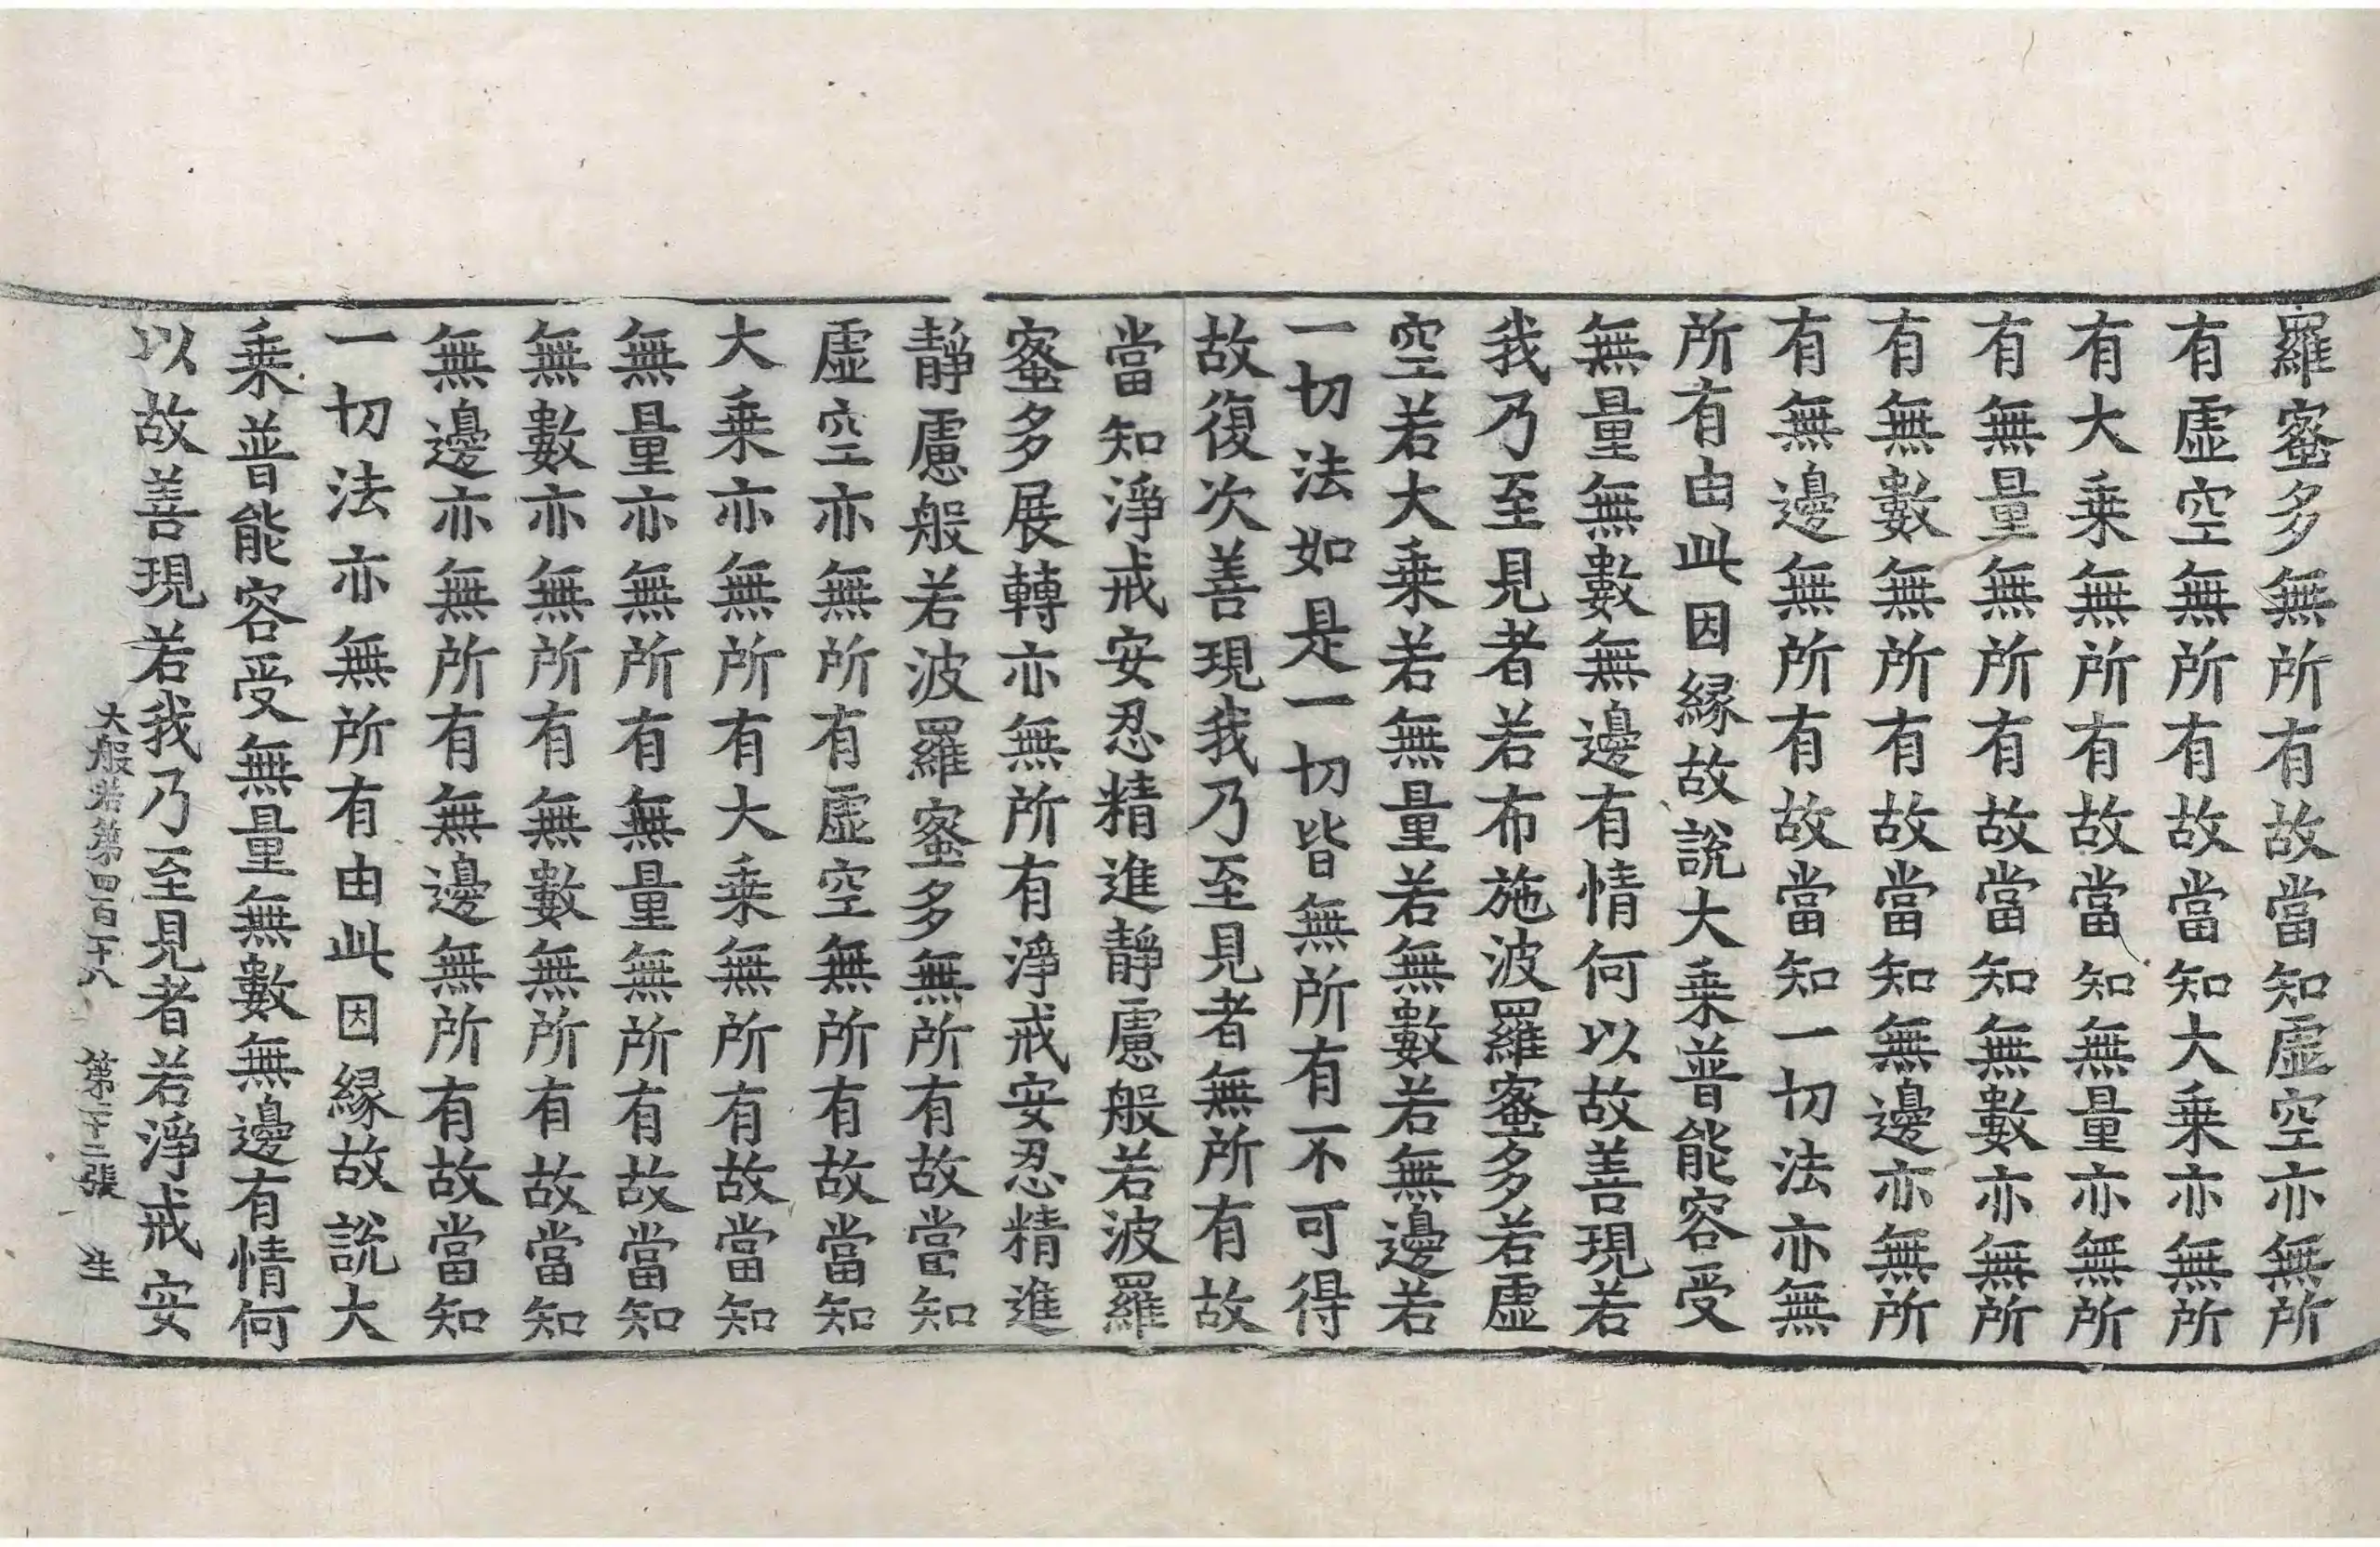 羅蜜多無所有故當知虛空亦無所
有虛空無所有故當知大乗亦無所
有大乗無所有故當知無量亦無所
有無量無所有故當知無數亦無所
有無數無所有故當知無邊亦無所
有無邊無所有故當知一切法亦無
所有由此因縁故說大乗普能容受
無量無數無邊有情何以故善現若
我乃至見者若布施波羅蜜多若虛
空若大乗若無量若無數若無邊若
一切法如是一切皆無所有不可得
故復次善現我乃至見者無所有故
當知淨戒安忍精進靜慮般若波羅
蜜多展轉亦無所有淨戒安忍精進
靜慮般若波羅蜜多無所有故當知
虛空亦無所有虛空無所有故當知
大乗亦無所有大乗無所有故當知
無量亦無所有無量無所有故當知
無數亦無所有無數無所有故當知
無邊亦無所有無邊無所有故當知
一切法亦無所有由此因縁故說大
乗普能容受無量無數無邊有情何
以故善現若我乃至見者若淨戒安
大般若第四百十八 第二十二張 生